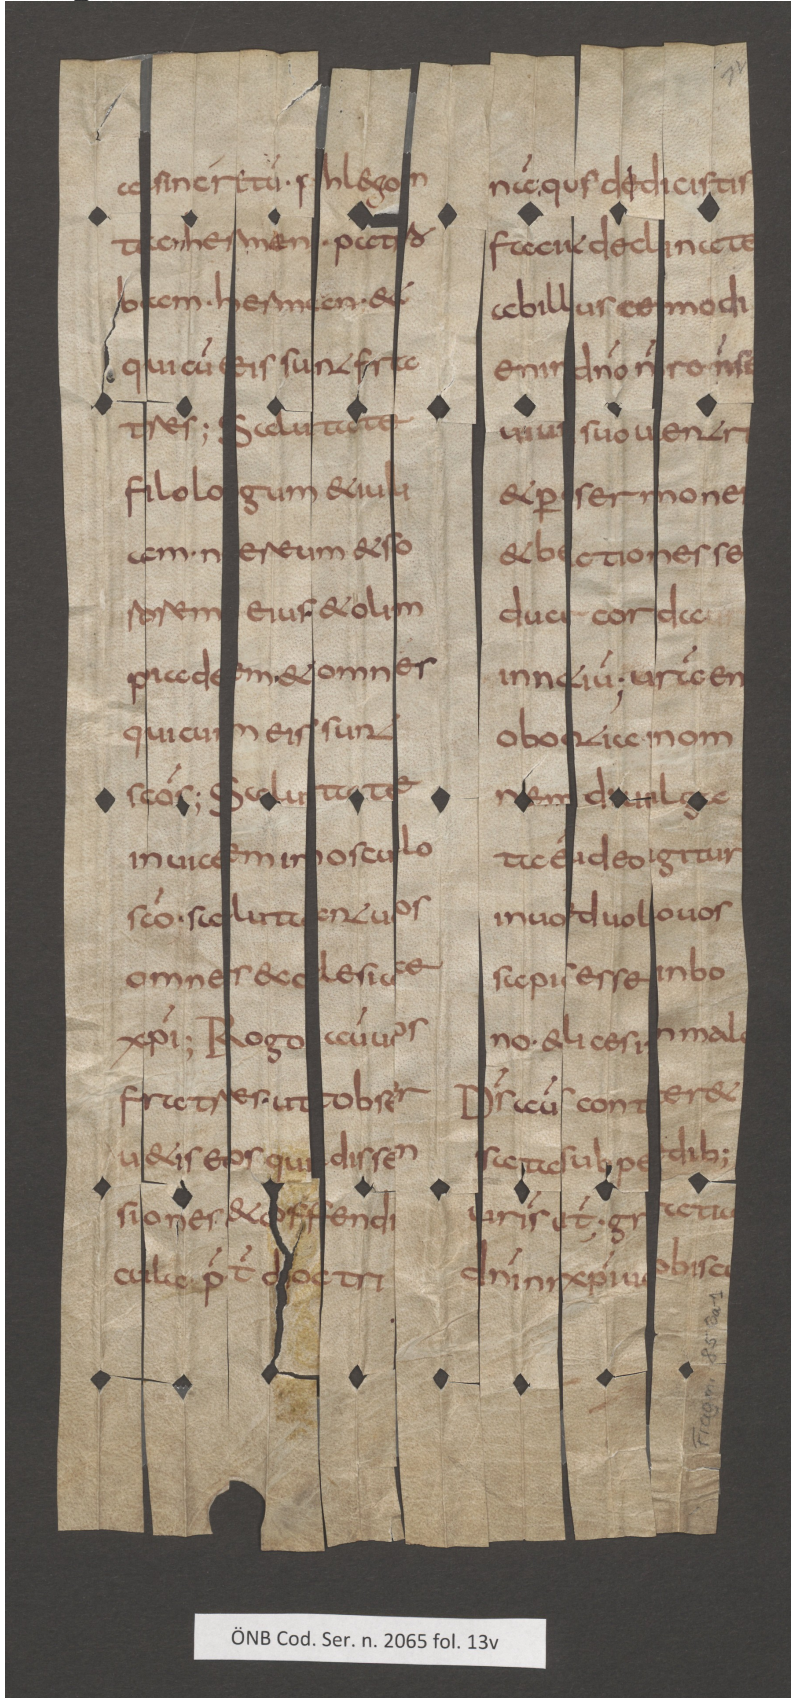 asincritū· phlegon
tam hermen· patro
bam· hermam· &
qui cū eis sunt fra
tres; Salutate
filologum & iuli
am· nereum & so
rorem eius· & olim
piadem· & omnes
qui cum eis sunt
scōs; Salutate
inuicem in osculo
scō· salutant uos
omnes ecclesiae
xpī; Rogo aūuos
fratres· ut obser
u&is eos qui dissen
siones & offendi
cula· p̄t̄ doctri
nā· q̄ uos dedicistis
faciunt declinate
ab illis
enim dn̄o n̄ro n̄ se
uiunt suo uentri
& p̄ sermones
& b ctiones se
ducunt corda
innocentiū; ur̄a en
oboedientia in om
nem diuulga
ta ē· ideo igitur
in uob uolo uos
sapientes esse in bo
no· & in malo
Ds̄ aūs conter&
sata sub pedib;
ur̄is gratia
dn̄i nr̄i xp̄i uobiscū
Fragm. 85
ÖNB Cod. Ser. n. 2065 fol. 13v